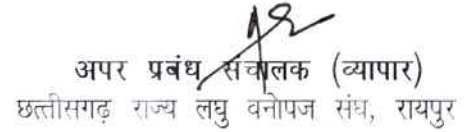 अपर प्रबंध संचालक (व्यापार)
छत्तीसगढ़ राज्य लघु वनोपज संघ, रायपुर